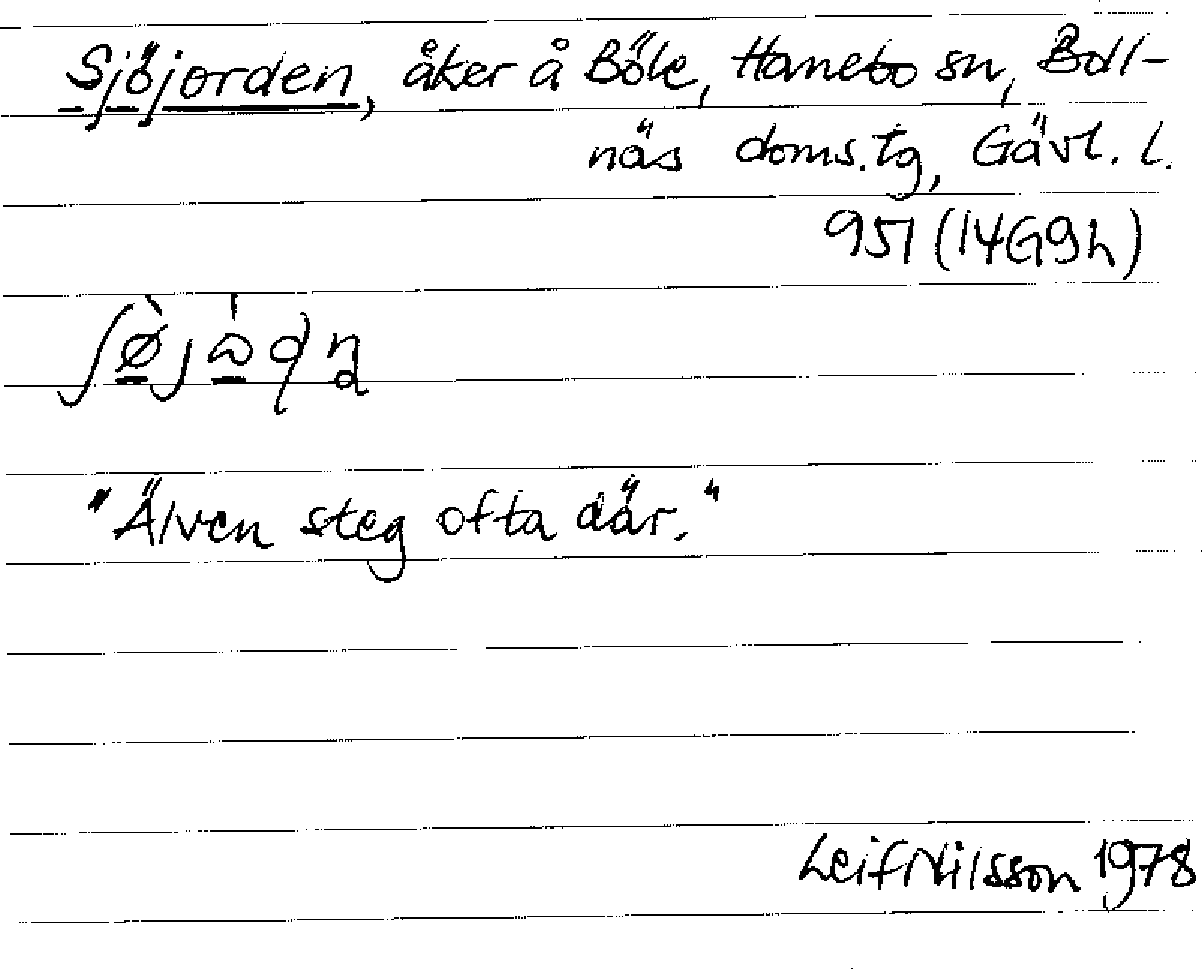 Sjöjorden, åker å Böle, Hanebo sn, Boll-
näs doms.tg, Gävl. l.
951 (14G9h)
"Älven steg ofta där."
Leif Nilsson 1978